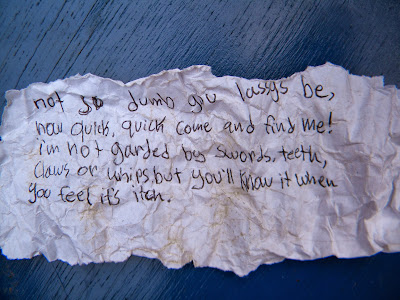 not so dumb you lassys be,
now quick, quick come and find me!
i'm not garded by swords, teeth,
claws or whips but you'll know it when
you feel it's itch.